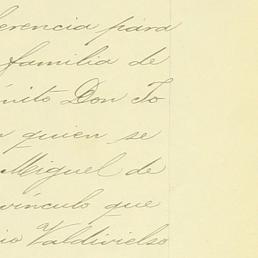 erencia para
familia de
nito Don To
n quien se
Miguel de
vínculo que
io Valdivielso